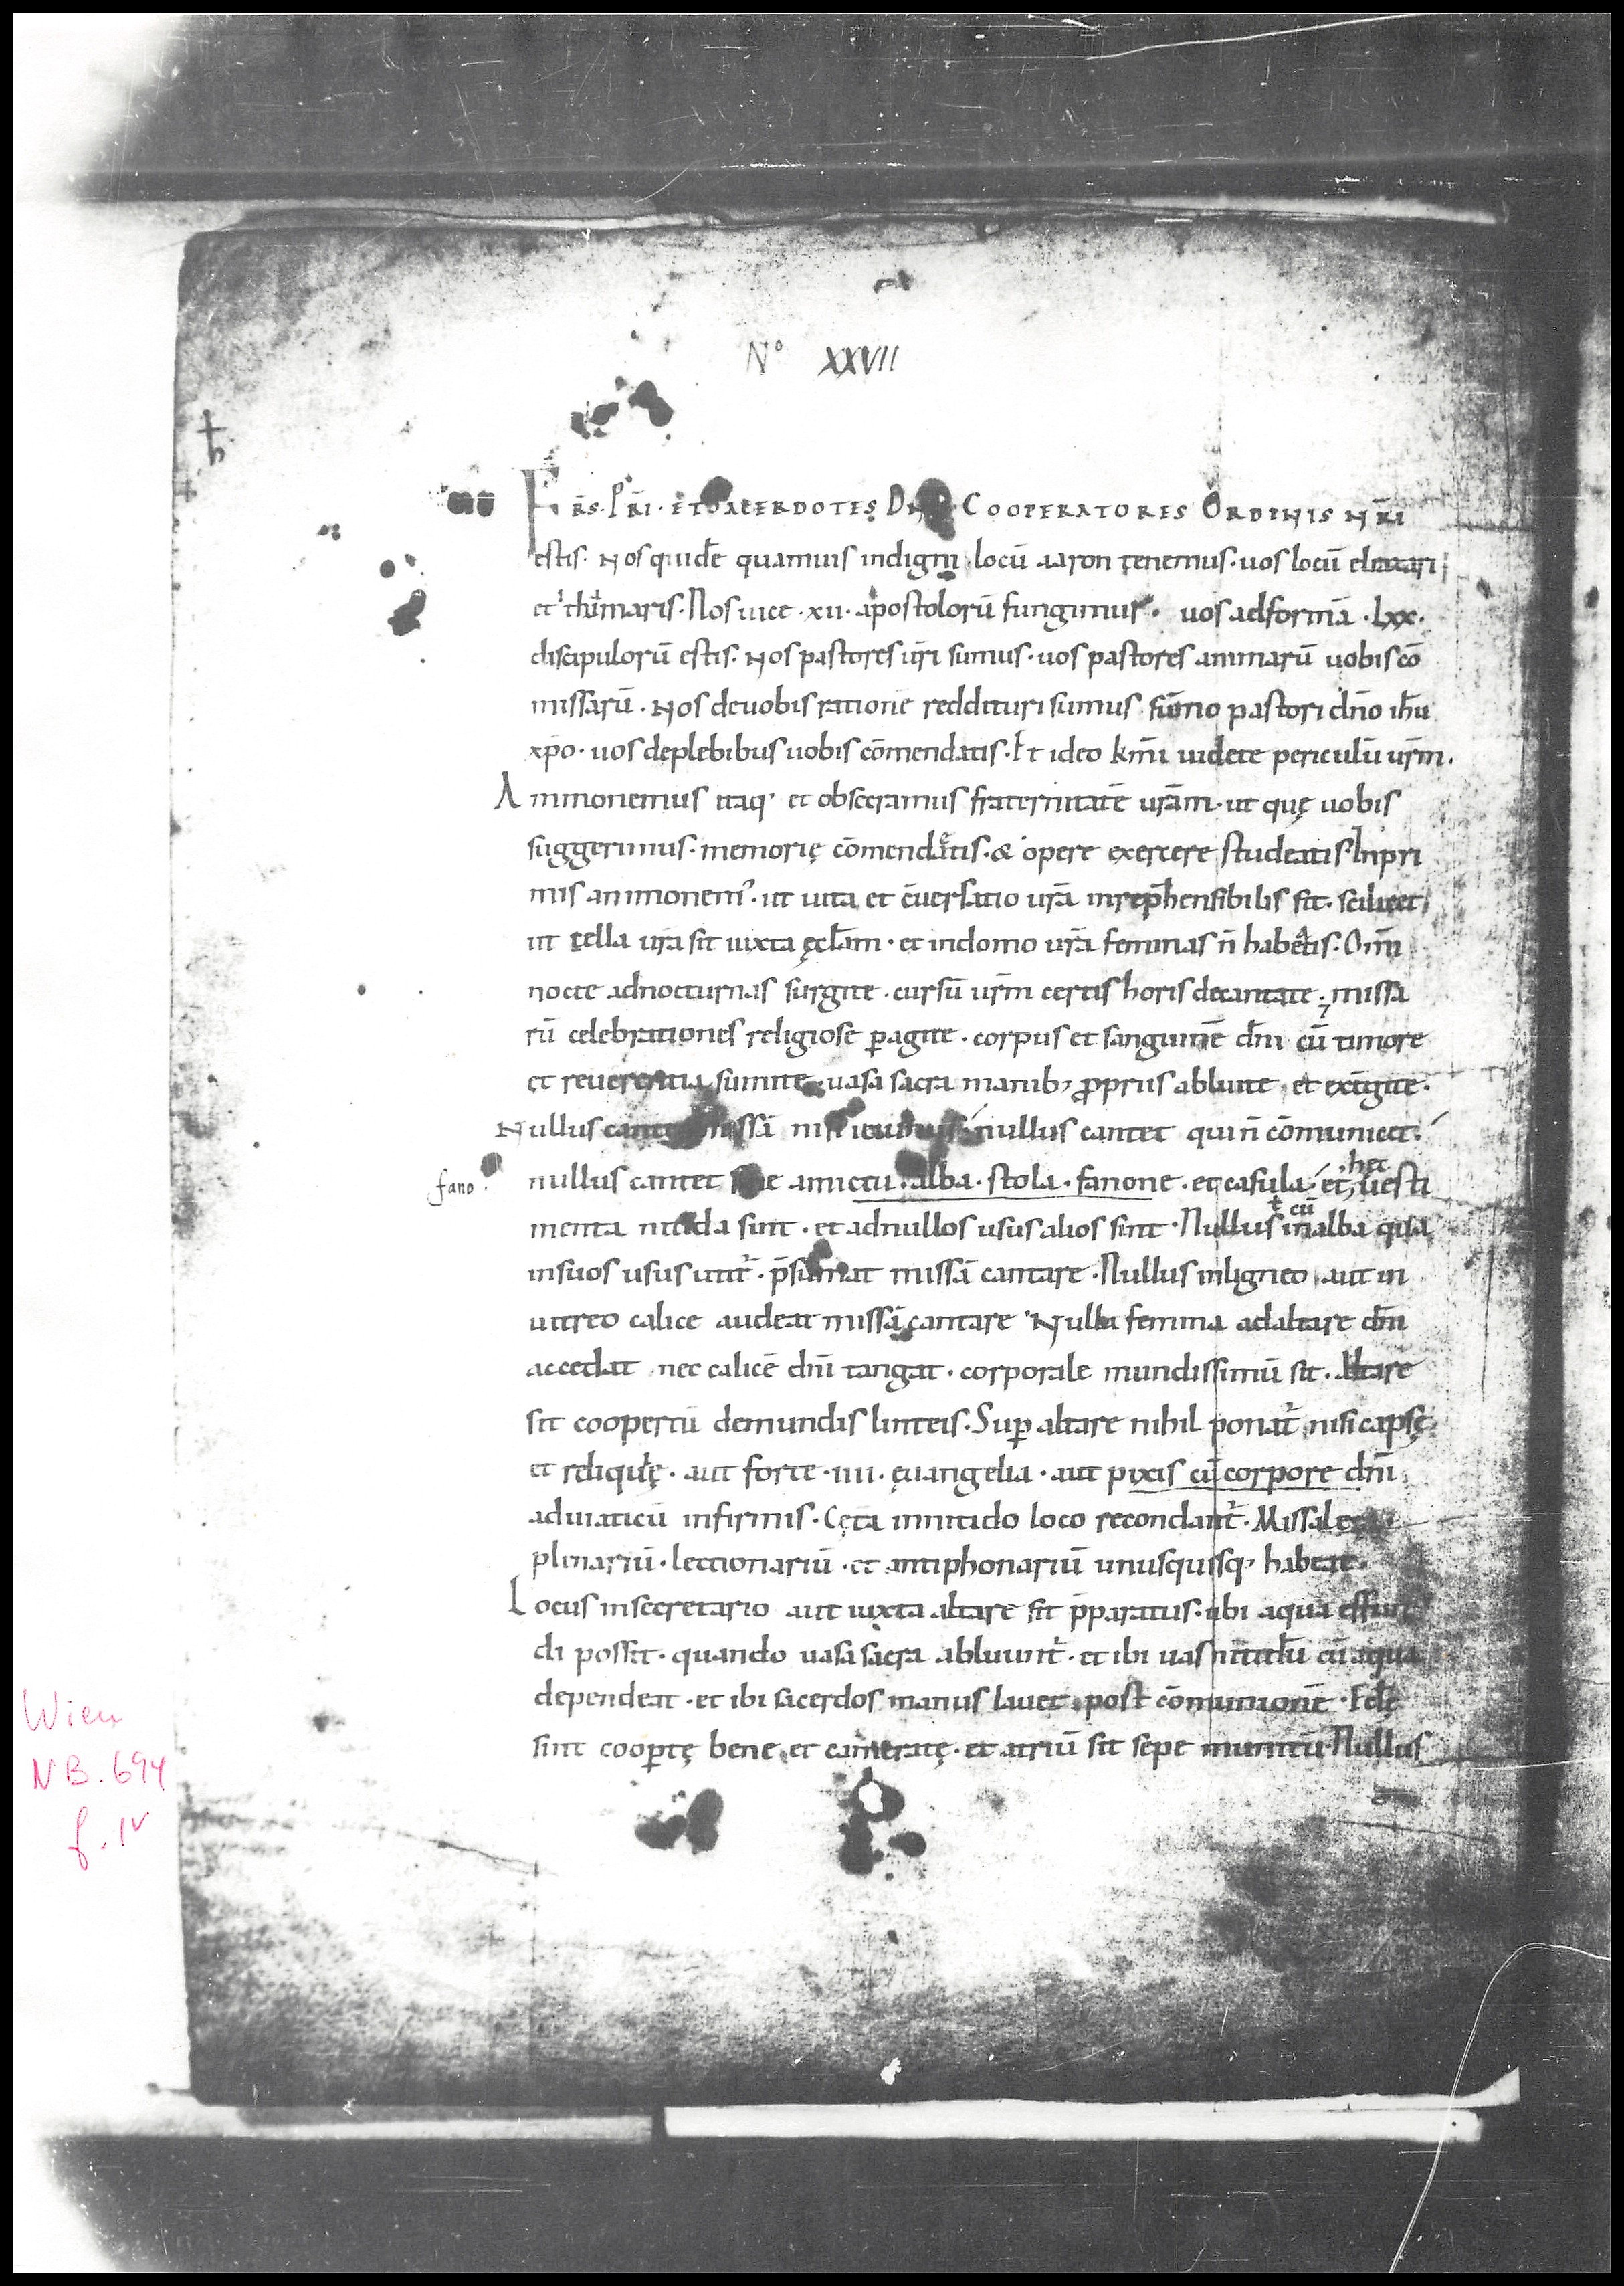 N° XXVII
FRS. PRI. ET SACERDOTES DNI COOPERATORES ORDINIS NRI
estis. Nos quidē quamuis indigni locū aaron tenemus. uos locū eleazari
et ithamaris. Nos uice .xii. apostolorū fungimur. uos ad formā .lxx.
discipulorū estis. Nos pastores uri sumus. uos pastores animarū uobis cō
missarū. Nos de uobis rationē reddituri sumus sūmo pastori dn̄o ihu
xpo. uos de plebibus uobis cōmendatis. Et ideo kmi uidete periculū urm.
Ammonemus itaq; et obsecramus fraternitatē uram. ut quę uobis
suggerimus. memorię cōmendetis. & opere exercere studeatis. Inpri
mis ammonem'. ut uita et cuersatio ura inrephensibilis sit. scilicet
ut cella ura sit iuxta ęclam. et in domo ura feminas n̄ habeatis. Omi
nocte ad nocturnas surgite. cursū urm certis horis decantate. missa
rū celebrationes religiose pagite. corpus et sanguinē dni cū timore
et reuerentia sumite. uasa sacra manib; propriis abluite et extgite.
Nullus cantet missā nisi ieiunus. nullus cantet qui n̄ cōmunicet.
fano.
nullus cantet sine amictu. alba. stola. fanone. et casula. et hec uesti
menta nitida sint. et ad nullos usus alios sint. Nullus in ł cū alba qua
in suos usus utit. psumat missā cantare. Nullus in ligneo aut in
uitreo calice audeat missā cantare. Nulla femina ad altare dni
accedat nec calicē dni tangat. corporale mundissimū sit. Altare
sit coopertū de mundis linteis. Sup altare nihil ponat nisi capsę
et reliquię. aut forte .iiii. ęuangelia. aut pixis cū corpore dni
ad uiaticū infirmis. Cęta in nitido loco recondant. Missale
plenariū. lectionariū. et antiphonariū unusquisq; habeat.
Locus in secretario aut iuxta altare sit pparatus. ubi aqua effun
di possit. quando uasa sacra abluunt. et ibi uas nitidū cū aqua
dependeat. et ibi sacerdos manus lauet post cōmunionē. Eclę
sint coopte bene et cameratę. et atriū sit sepe munitū. Nullus
Wien
NB. 694
f. 1v